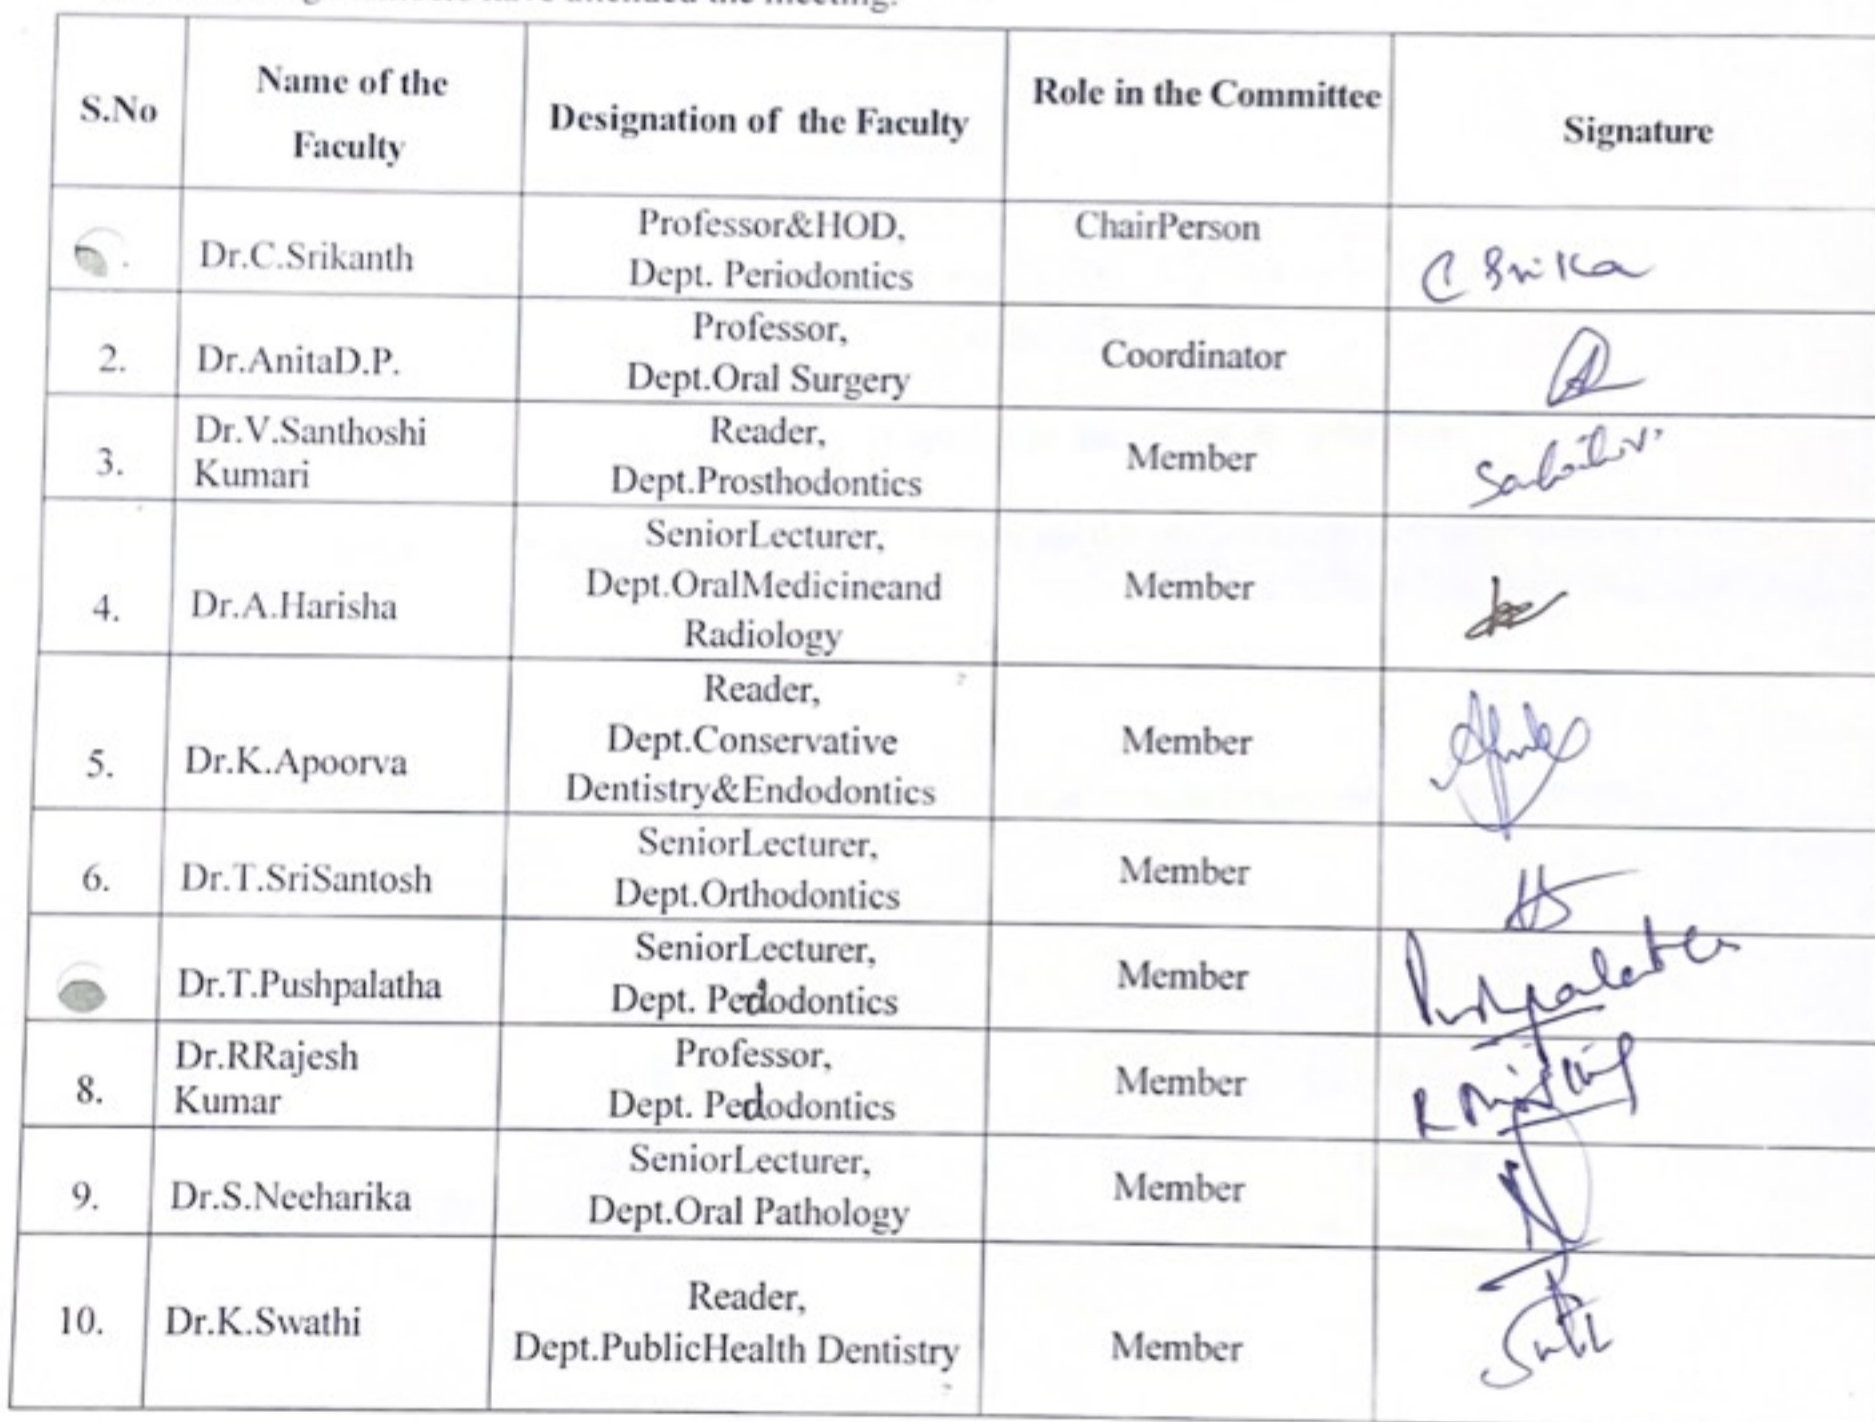 have attended the meeting.
S.No
Name of the
Faculty
Designation of the Faculty
Role in the Committee
Signature
Dr.C.Srikanth
Professor&HOD,
Dept. Periodontics
ChairPerson
C Srika
2.
Dr.AnitaD.P.
Professor,
Dept.Oral Surgery
Coordinator
3.
Dr.V.Santhoshi
Kumari
Reader,
Dept.Prosthodontics
Member
4.
Dr.A.Harisha
SeniorLecturer,
Dept.OralMedicineand
Radiology
Member
5.
Dr.K.Apoorva
Reader,
Dept.Conservative
Dentistry&Endodontics
Member
6.
Dr.T.SriSantosh
SeniorLecturer,
Dept.Orthodontics
Member
Dr.T.Pushpalatha
SeniorLecturer,
Dept. Pedodontics
Member
Pushpalatha
8.
Dr.RRajesh
Kumar
Professor,
Dept. Pedodontics
Member
9.
Dr.S.Neeharika
SeniorLecturer,
Dept.Oral Pathology
Member
10.
Dr.K.Swathi
Reader,
Dept.PublicHealth Dentistry
Member